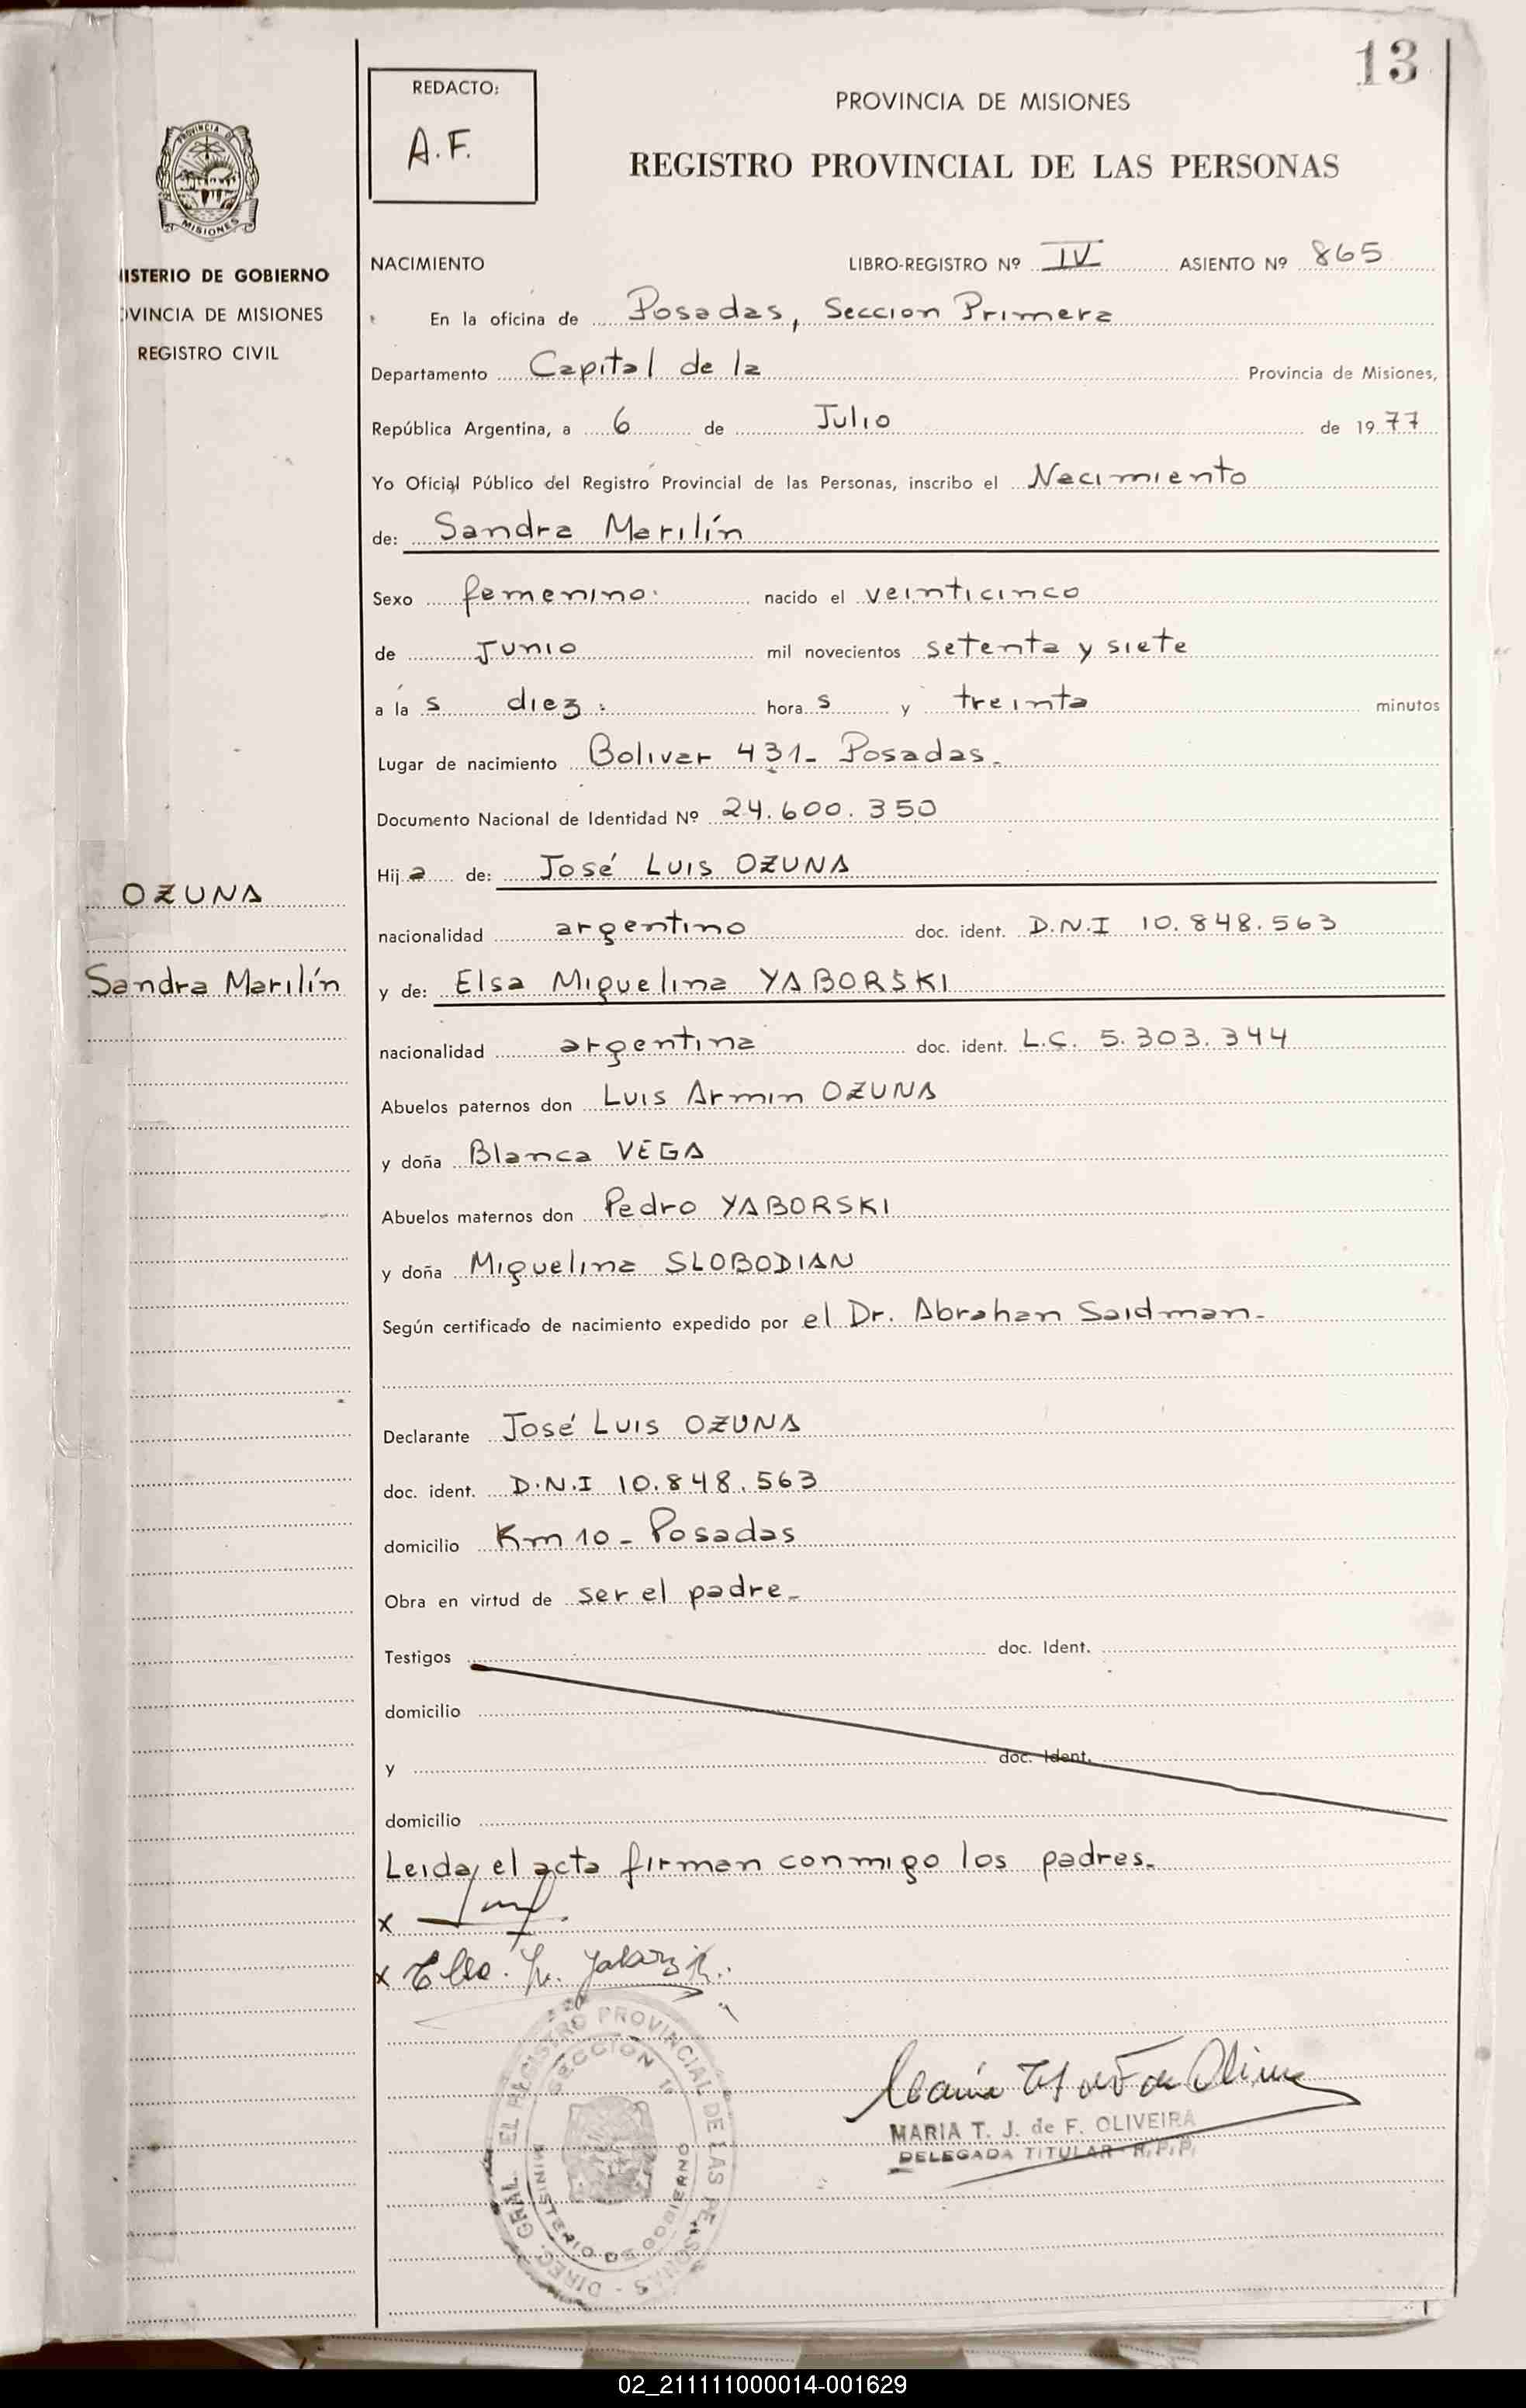 13
REDACTO:
A.F.
PROVINCIA DE MISIONES
REGISTRO PROVINCIAL DE LAS PERSONAS
PROVINCIA D
MISIONES
ISTERIO DE GOBIERNO
VINCIA DE MISIONES
REGISTRO CIVIL
NACIMIENTO LIBRO-REGISTRO Nº IV ASIENTO Nº 865
En la oficina de Posadas, Seccion Primera
Departamento Capital de la Provincia de Misiones,
República Argentina, a 6 de Julio de 1977
Yo Oficial Público del Registro Provincial de las Personas, inscribo el Nacimiento
de: Sandra Marilín
Sexo femenino: nacido el veinticinco
de Junio mil novecientos setenta y siete
a las diez: horas y treinta minutos
Lugar de nacimiento Bolivar 431- Posadas-
Documento Nacional de Identidad Nº 24.600.350
Hija de: José Luis OZUNA
OZUNA
nacionalidad argentino doc. ident. D.N.I 10.848.563
Sandra Marilín
y de: Elsa Miguelina YABORSKI
nacionalidad argentina doc. ident. L.C. 5.303.344
Abuelos paternos don Luis Armin OZUNA
y doña Blanca VEGA
Abuelos maternos don Pedro YABORSKI
y doña Miguelina SLOBODIAN
Según certificado de nacimiento expedido por el Dr. Abrahan Saidman-
Declarante José Luis OZUNA
doc. ident. D.N.I 10.848.563
domicilio Km 10 - Posadas
Obra en virtud de ser el padre-
Testigos doc. Ident.
domicilio
y doc. Ident.
domicilio
Leida el acta firman conmigo los padres-
x
x
DIREC. GRAL. EL REGISTRO PROVINCIAL DE LAS PERSONAS
SECCION 1ª
MINISTERIO DE GOBIERNO
MARIA T. J. de F. OLIVEIRA
DELEGADA TITULAR - R.P.P.
02_211111000014-001629